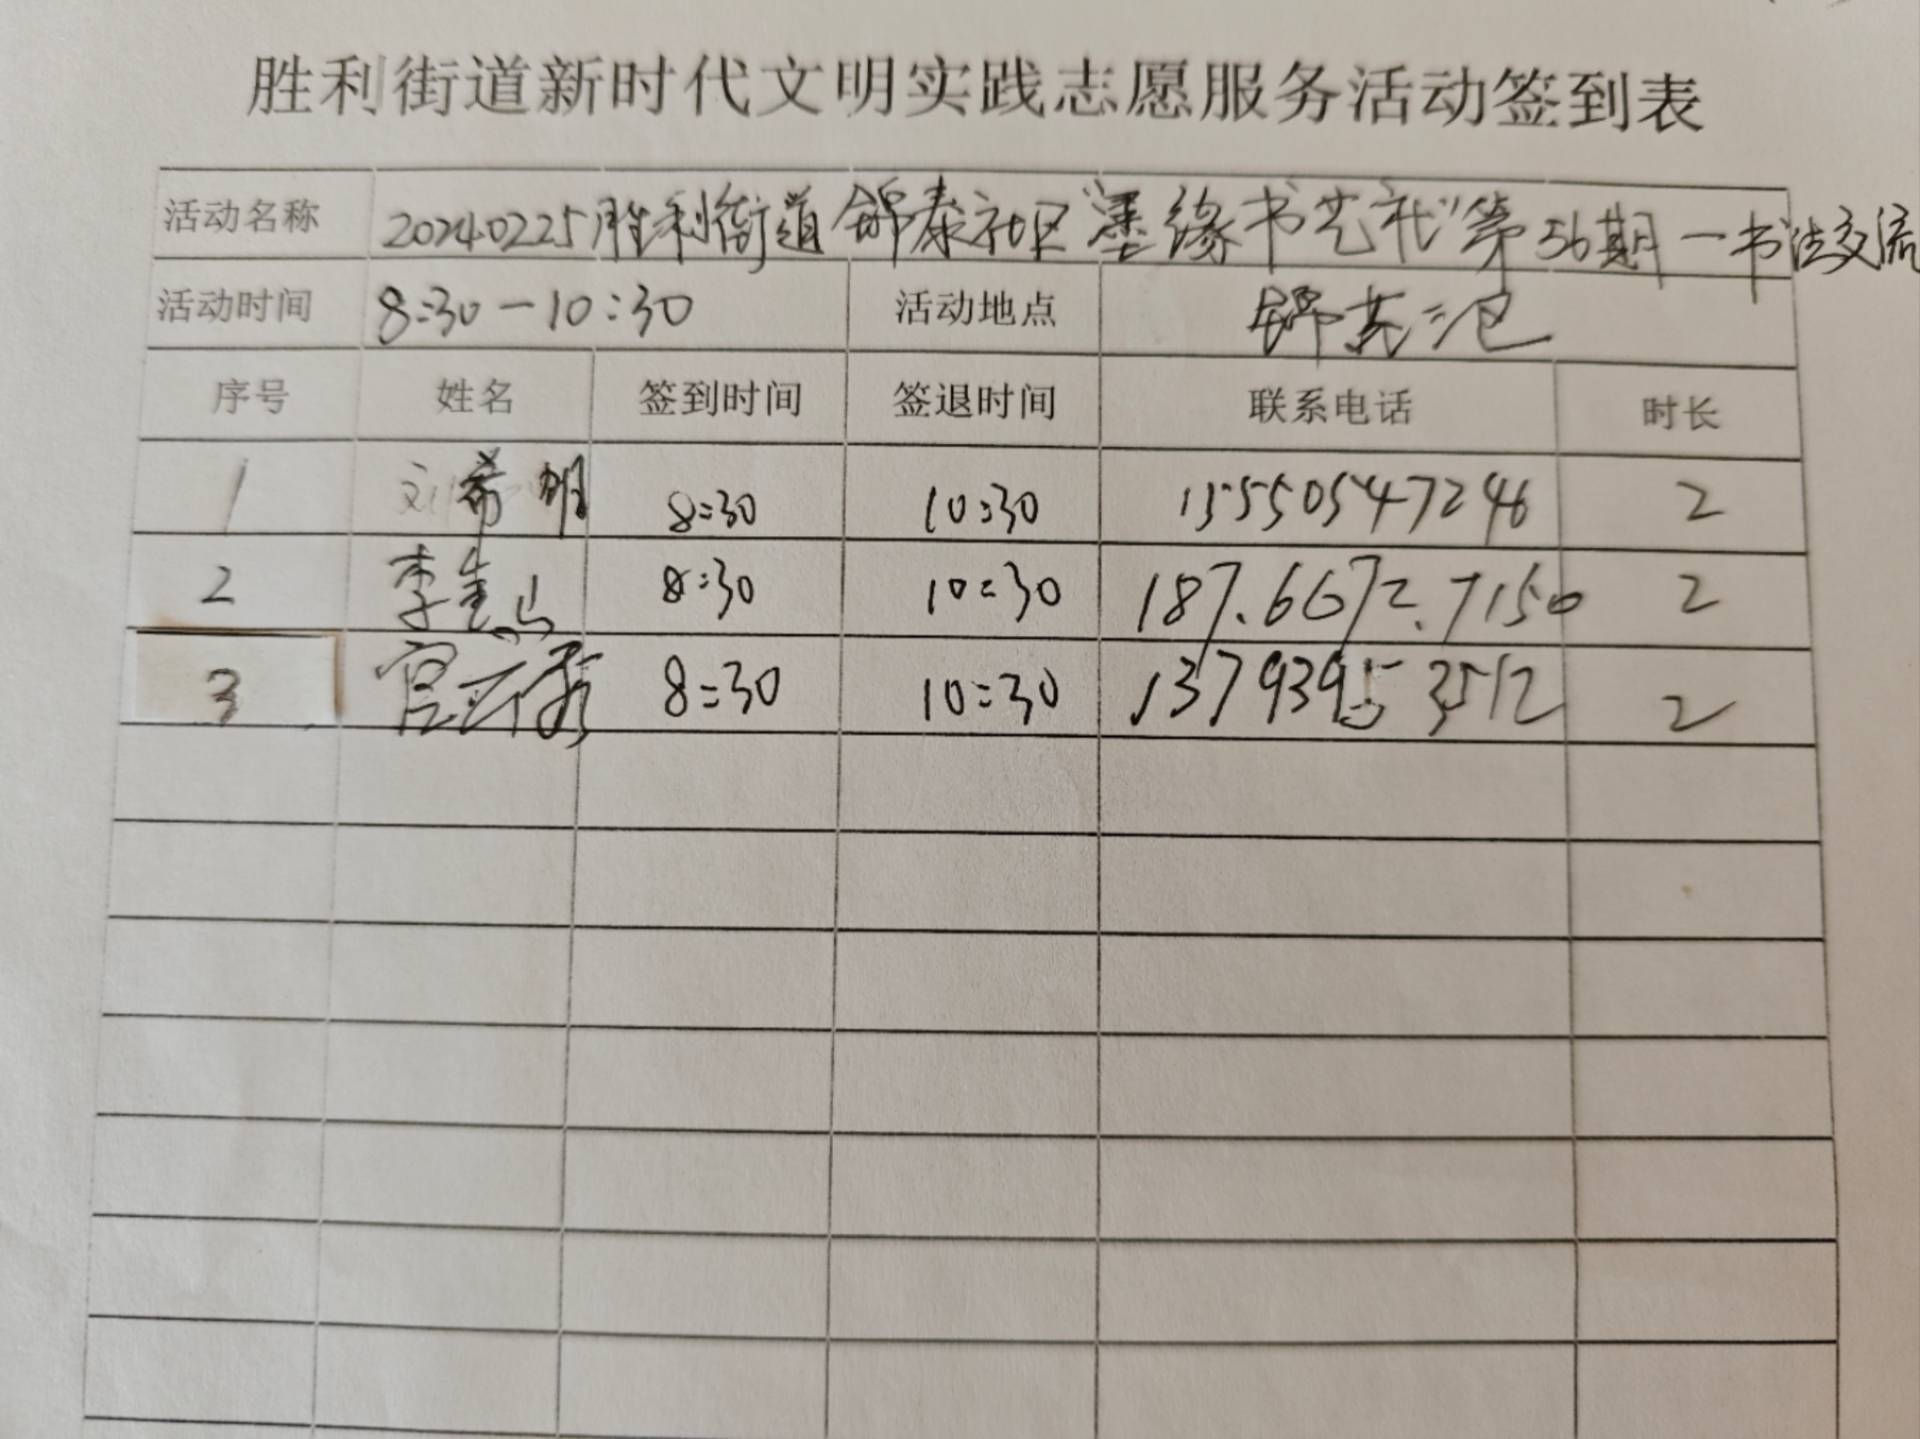 胜利街道新时代文明实践志愿服务活动签到表
活动名称 20240225胜利街道锦泰社区"墨缘书艺社"第56期一书法交流
活动时间 8:30-10:30 活动地点 锦苑二区
序号 姓名 签到时间 签退时间 联系电话 时长
1 刘希明 8:30 10:30 15550547246 2
2 李 山 8:30 10:30 187.6672.7150 2
3 宫 8:30 10:30 13793953512 2